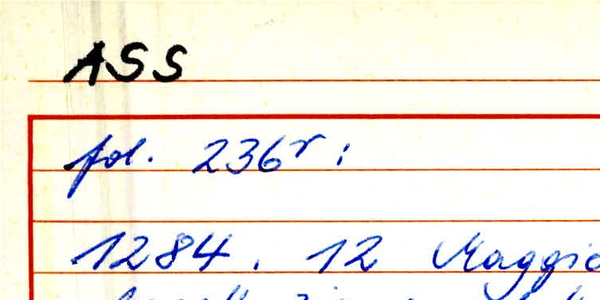 ASS
fol. 236r:
1284. 12 Maggio